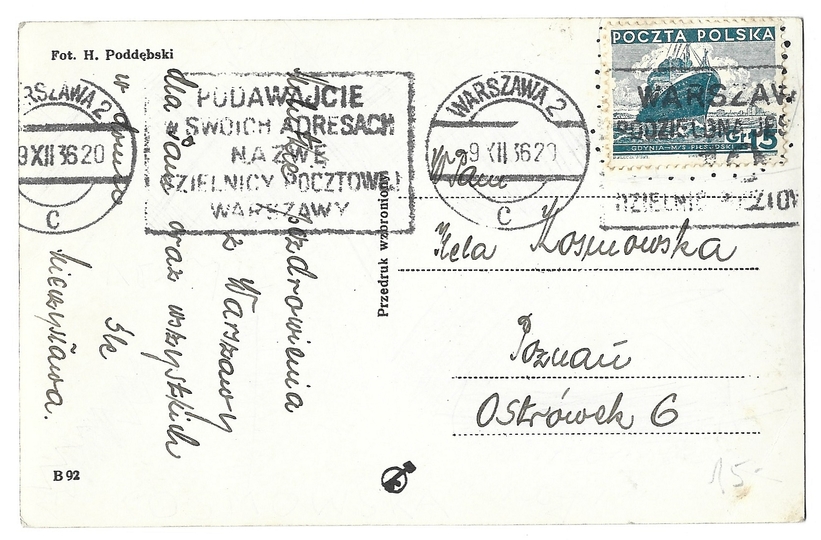 Fot. H. Poddębski
WARSZAWA 2
9 XII 36 20
C
PODAWAJCIE
W SWOICH ADRESACH
NAZWĘ
DZIELNICY POCZTOWEJ
WARSZAWY
WARSZAWA 2
9 XII 36 20
C
POCZTA POLSKA
GR 15
GDYNIA-M/S PIŁSUDSKI
WARSZAW
PODZIELONA JES
pozdrowienia
z Warszawy
dla Pani oraz wszystkich
w domu
śle
Mieczysława.
Przedruk wzbroniony
W Pani
Hela Kosmowska
Poznań
Ostrówek 6
B 92
15-